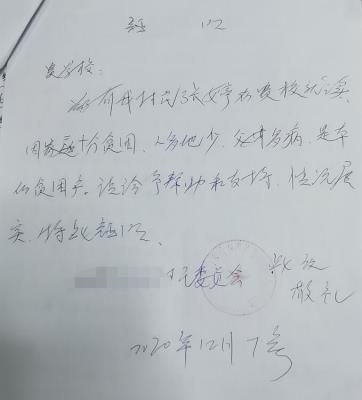 证 明
贵学校:
兹有我村民张女婷在贵校就读、
因家庭十分贫困、人多地少、父母多病、是本
村贫困户。请给予帮助和支持、情况属
实、特此证明。
村民委员会 此致
敬礼
2020年12月7号